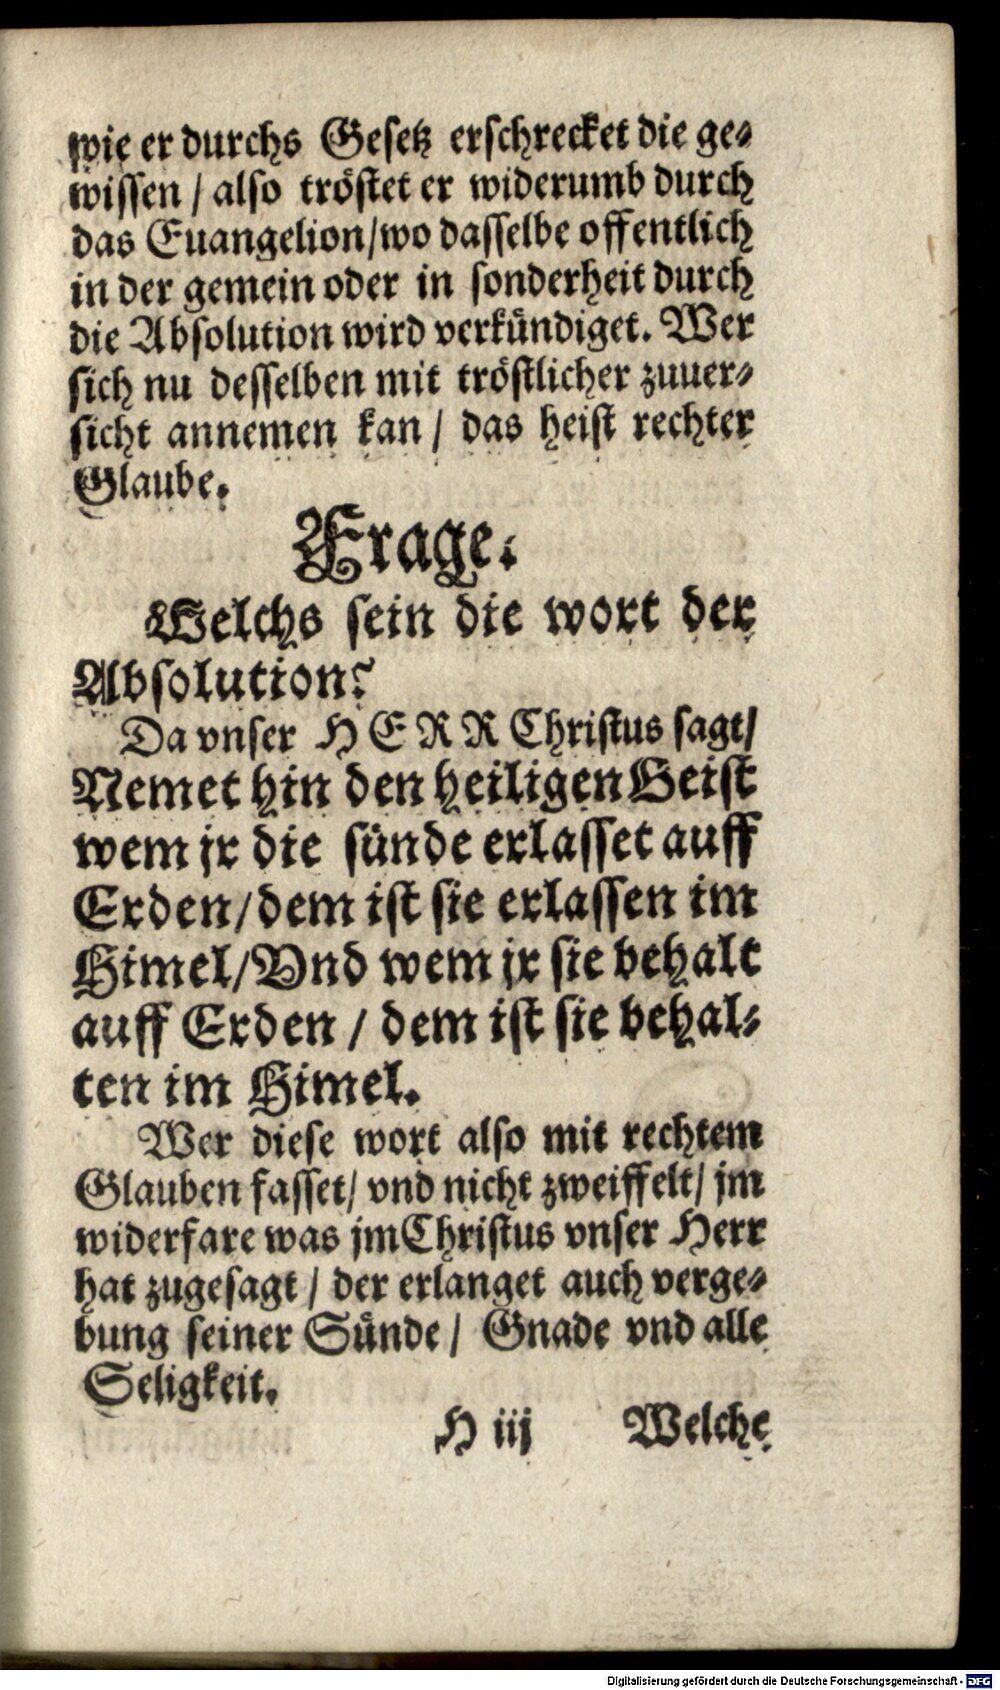 wie er durchs Gesetz erschrecket die ge-
wissen / also tröstet er widerumb durch
das Euangelion/wo dasselbe offentlich
in der gemein oder in sonderheit durch
die Absolution wird verkündiget. Wer
sich nu desselben mit tröstlicher zuuer-
sicht annemen kan / das heist rechter
Glaube.
Frage.
Welchs sein die wort der
Absolution?
Da vnser HERR Christus sagt/
Nemet hin den heiligen Geist
wem jr die sünde erlasset auff
Erden/dem ist sie erlassen im
Himel/Vnd wem jr sie behalt
auff Erden / dem ist sie behal-
ten im Himel.
Wer diese wort also mit rechtem
Glauben fasset/ vnd nicht zweiffelt/ jm
widerfare was jm Christus vnser Herr
hat zugesagt / der erlanget auch verge-
bung seiner Sünde / Gnade vnd alle
Seligkeit.
H iij Welche
Digitalisierung gefördert durch die Deutsche Forschungsgemeinschaft - DFG